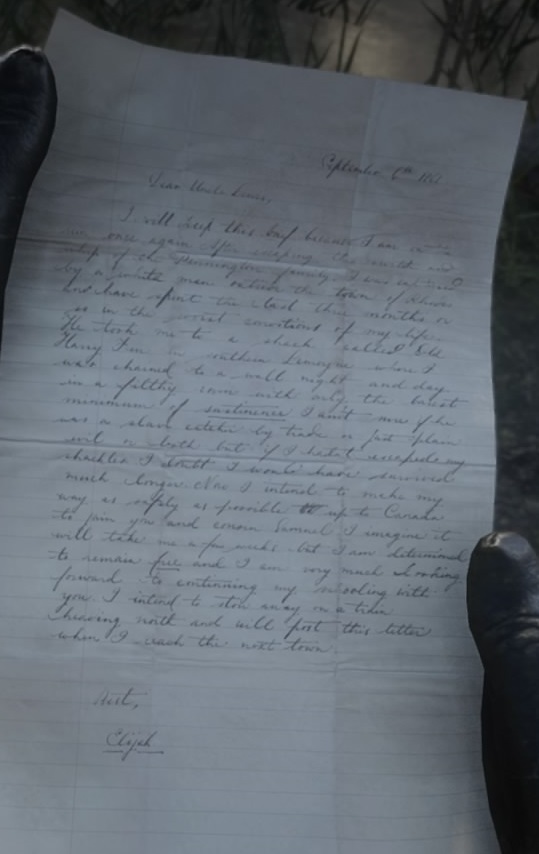 September 6th
Dear Uncle Lewis,
I will keep this brief because I am
once again after escaping the wrath and
whip of the family I was
by a white man outside the town of Rhodes
and have spent the last three months or
so in the worst conditions of my life.
He took me to a shack called Old
Harry Fen in southern Lemoyne where I
was chained to a wall night and day
in a filthy room with only the barest
minimum of sustinence I ain't sure if he
was a slave catcher by trade or just plain
evil or both but if I hadn't escaped my
shackles I doubt I would have survived
much longer Now I intend to make my
way as safely as possible up to Canada
to join you and cousin Samuel I imagine it
will take me a few weeks but I am determined
to remain free and I am very much looking
forward to continuing my schooling with
you. I intend to stow away on a train
heaving north and will post this letter
when I reach the next town.
Best,
Elijah